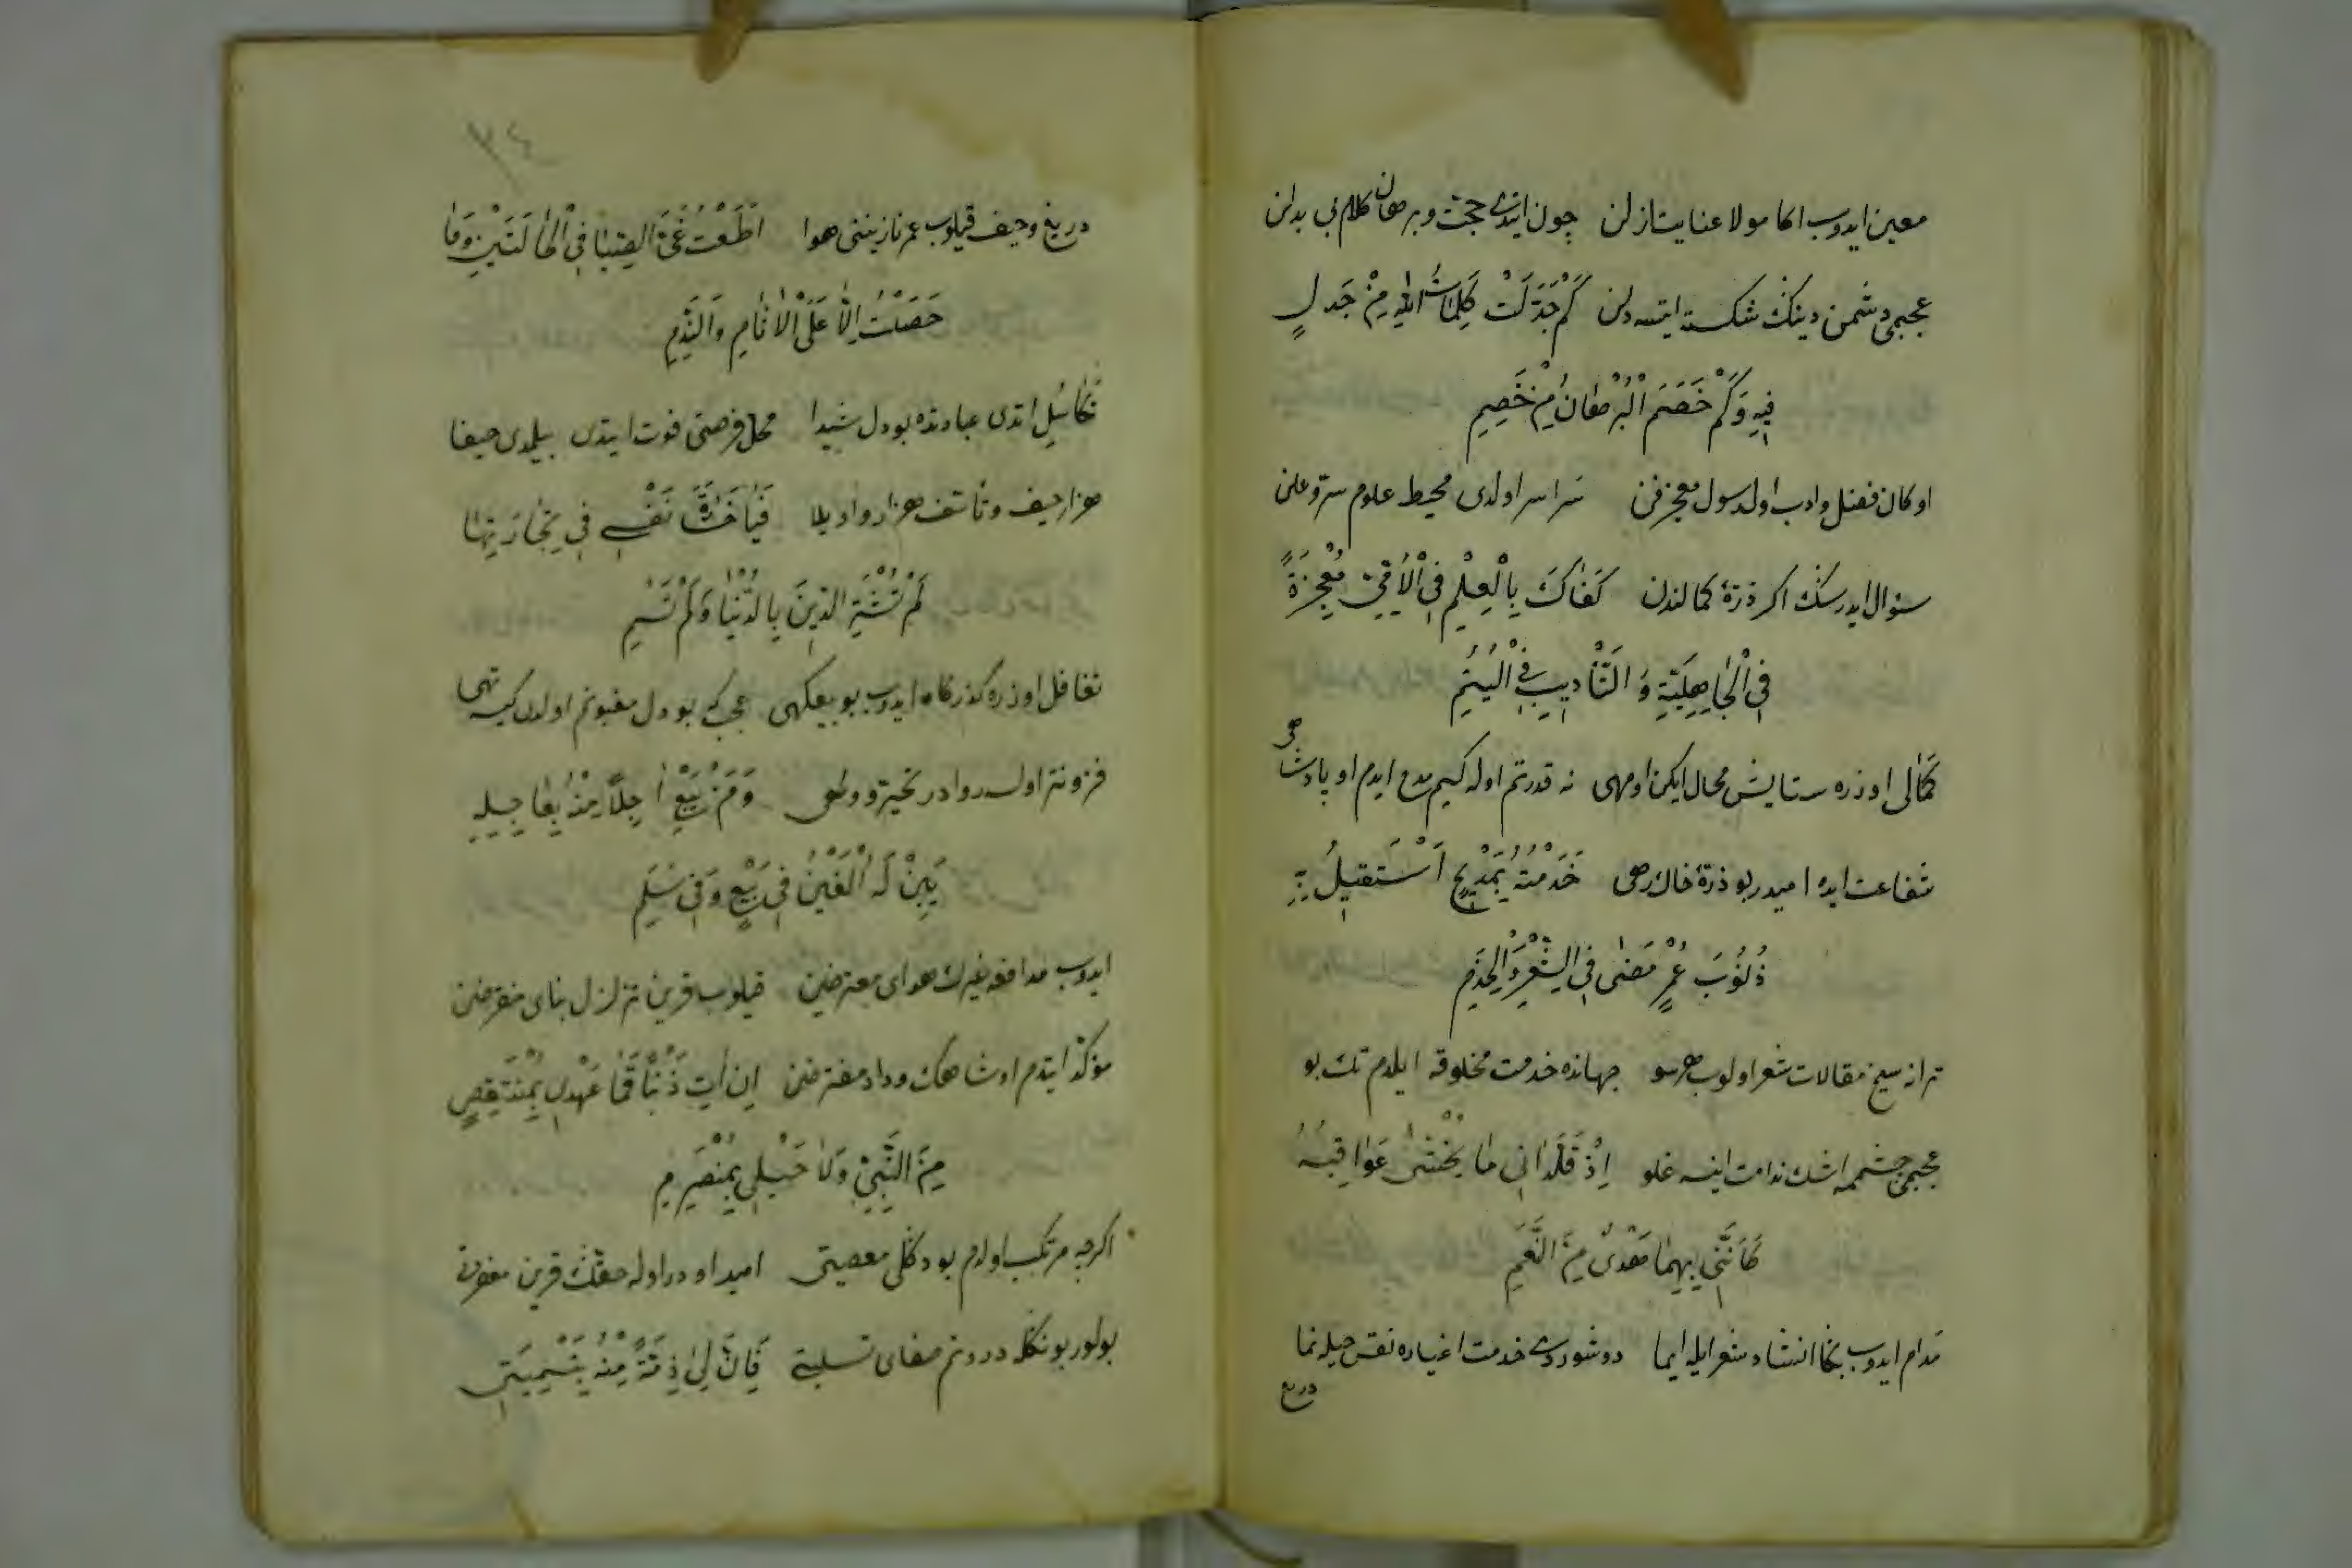 معین ایدوب اکا مولا عنایت ازلن چون ایتدی حجت و برهان کلام بی بدلن
عجبمی دشمن دینک شکسته ایتسه دلن كَمْ جَدَّلَتْ كَلِمَاتُ اللهِ مِنْ جَدَلٍ
فِيهِ وَكَمْ خَصَمَ الْبُرْهَانُ مِنْ خَصِمِ
او کان فضل وادب اول رسول معجزفن سراسر اولدی محیط علوم سر و علن
سؤال ایدرسك اکر ذرۀ کمالندن كَفَاكَ بِالْعِلْمِ فِي الْأُمِّيِّ مُعْجِزَةً
فِي الْجَاهِلِيَّةِ وَالتَّأْدِيبِ فِي الْيُتُمِ
کمالی اوزره ستایش محال ایکن او مهی نه قدرتم اوله کیم مدح ایدم او پادشهی
شفاعت ایده امیدر بو ذرۀ خاك رهی خَدَمْتُهُ بِمَدِيحٍ أَسْتَقِيلُ بِهِ
ذُنُوبَ عُمْرٍ مَضَى فِي الشِّعْرِ وَالْخِدَمِ
ترانه سنج مقالات شعر اولوب هر سو جهانده خدمت مخلوقه ایلدم تك بو
عجبمی چشممه اشك ندامت ایتسه غلو إِذْ قَلَّدَانِيَ مَا يُخْشَى عَوَاقِبُهُ
كَأَنَّنِي بِهِمَا هَدْيٌ مِنَ النَّعَمِ
مدام ایدوب بکا انشاد شعر ایله ایما دوشوردی خدمت اغیاره نفس حیله نما
دریغ
٣٤
دریغ و حیف قیلوب عمر نازنینی هوا أَطَعْتُ غَيَّ الصِّبَا فِي الْحَالَتَيْنِ وَمَا
حَصَلْتُ إِلَّا عَلَى الْآثَامِ وَالنَّدَمِ
تکاسل اتدی عبادتده بو دل شیدا محل فرصتی فوت ایتدی بیلمدی حیفا
هزار حیف و تأسف هزار واویلا فَيَا خَسَارَةَ نَفْسٍ فِي تِجَارَتِهَا
لَمْ تَشْتَرِ الدِّينَ بِالدُّنْيَا وَلَمْ تَسُمِ
تغافل اوزره کذرکاه ایدوب بو بیعکهی عجب که بو دل مغبونم اولدی کیسه تهی
فزونتر اولسه روادر تحیر و ولهی وَمَنْ يَبِعْ آجِلًا مِنْهُ بِعَاجِلِهِ
يَبِنْ لَهُ الْغَبْنُ فِي بَيْعٍ وَفِي سَلَمِ
ایدوب مدافعه غیرك هوای معترضن قیلوب قرین تزلزل بنای منقرضن
مؤکد ایتدم او شاهك وداد مفترضن إِنْ آتِ ذَنْبًا فَمَا عَهْدِي بِمُنْتَقِضٍ
مِنَ النَّبِيِّ وَلَا حَبْلِي بِمُنْصَرِمِ
اکرچه مرتکب اولدم بو دکلی معصیتی امید اودر اوله حقك قرین مغفرتی
بولور بونكله درونم صفای تسلیتی فَإِنَّ لِي ذِمَّةً مِنْهُ بِتَسْمِيَتِي